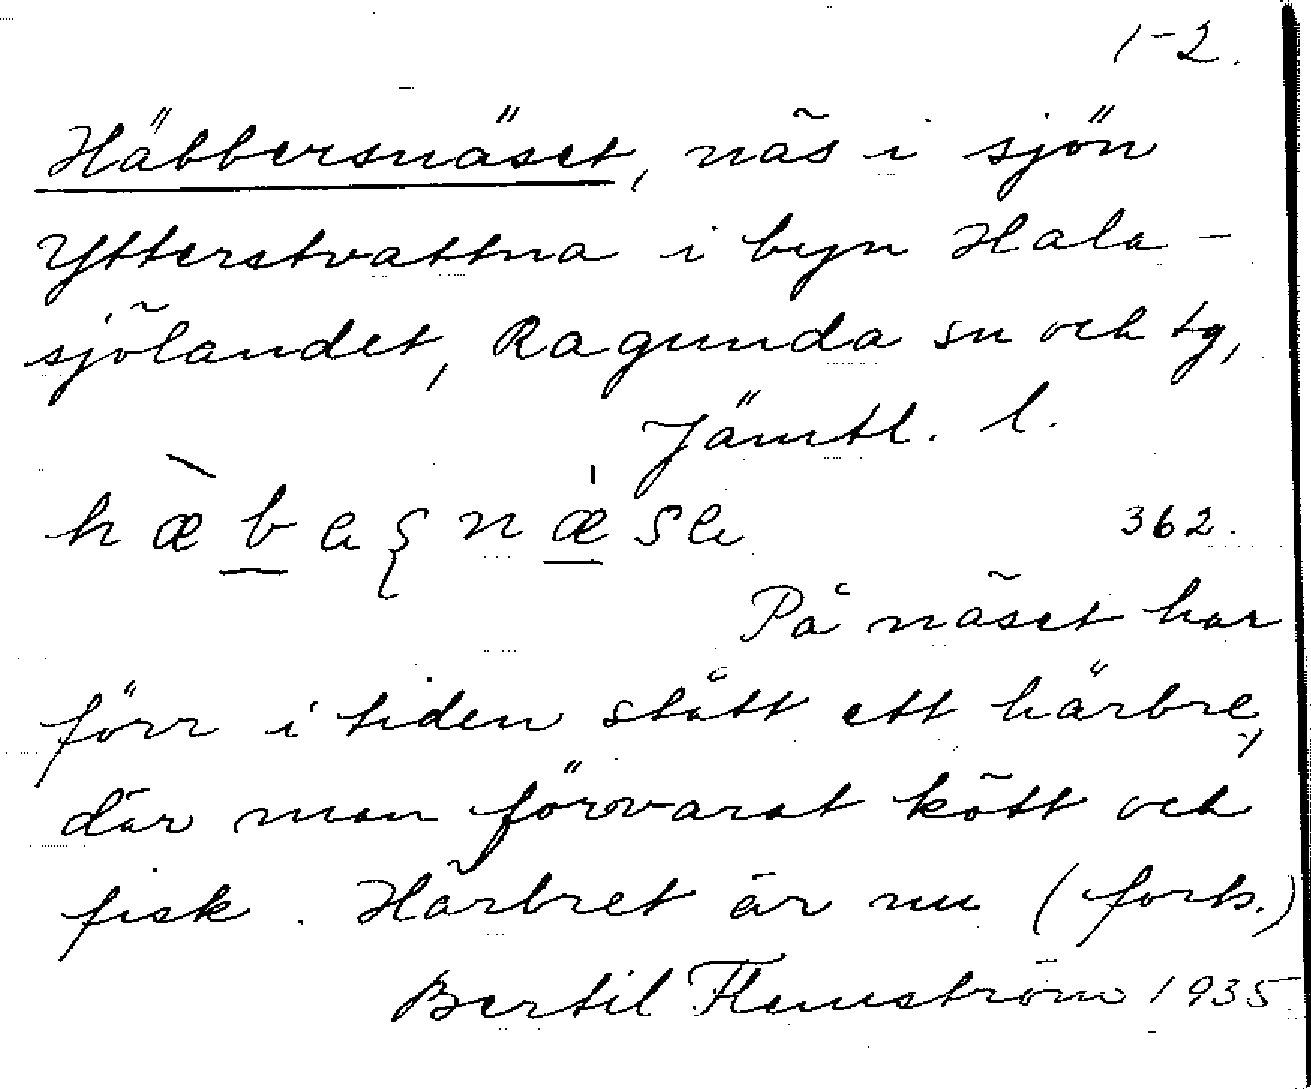 1-2.
Häbbersnäset, näs i sjön
Ytterstvattna i byn Hala-
sjölandet, Ragunda sn och tg,
Jämtl. l.
362.
På näset har
förr i tiden stått ett härbre,
där man förvarat kött och
fisk. Härbret är nu (forts.)
Bertil Flemström 1935